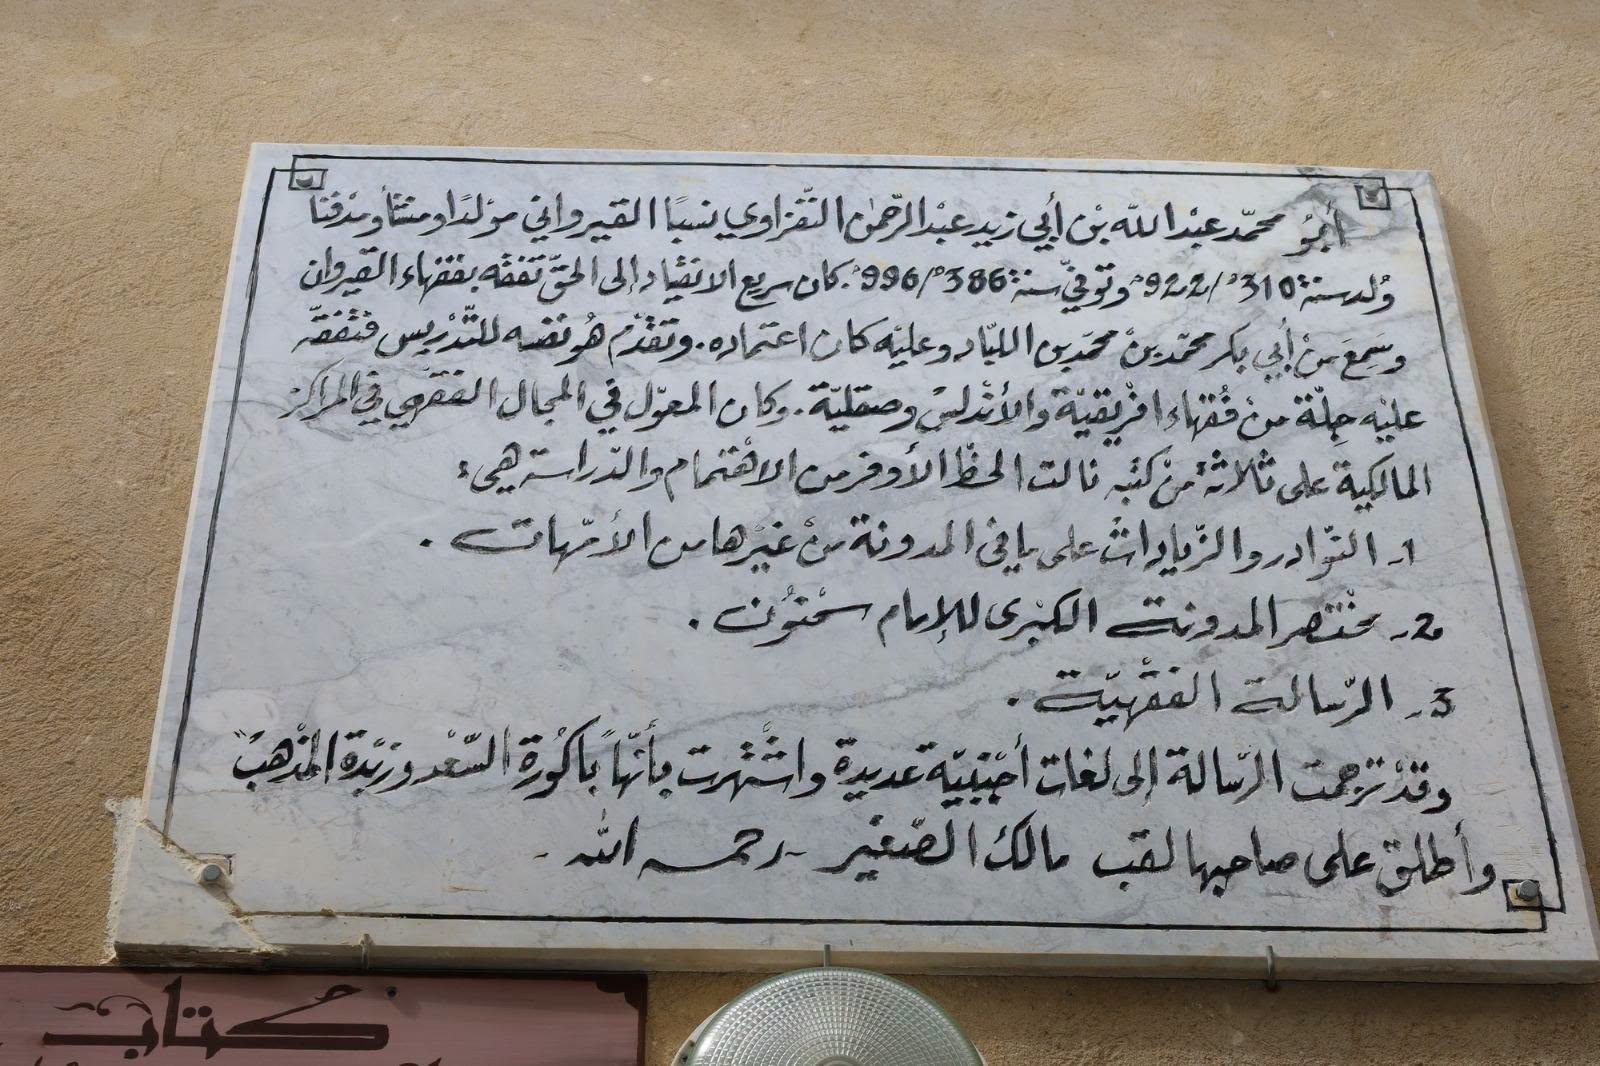 أبُو محمّد عبْد اللّه بْن أبي زيد عبْد الرّحمٰن النّفزاوي نسبًا القيرواني موْلدًا ومنشأ ومدْفنا
وُلد سنة 310ه/922م وتوفيّ سنة 386ه/996م. كان سريع الانقياد إلى الحقّ تفقّه بفقهاء القيروان
وسَمِعَ منْ أبي بكر محمّد بنْ محمّد بن اللبّاد وعليْه كان اعتماده. وتقدّم هُو نفسه للتّدْريس فتفقّه
عليْه جِلّة منْ فُقهاء افْريقيّة والأنْدلسْ وصقليّة. وكان المعوّل في المجال الفقهي في المراكز
المالكية على ثلاثة منْ كتبه نالت الحظّ الأوفر من الاهْتمام والدّراسة هي:
1- النّوادر والزّيادات على ما في المدونة منْ غيْرها من الأمّهات .
2- مخْتصر المدونة الكبْرى للإمام سحْنُون .
3- الرّسالة الفقْهيّة .
وقدْ ترجمت الرّسالة إلى لغات أجْنبيّة عديدة واشْتهرت بأنّها "باكُورة السّعْد وزبْدة المذْهبْ"
وأطلق على صاحبها لقب مالك الصّغير - رحمه الله -
كُتاب